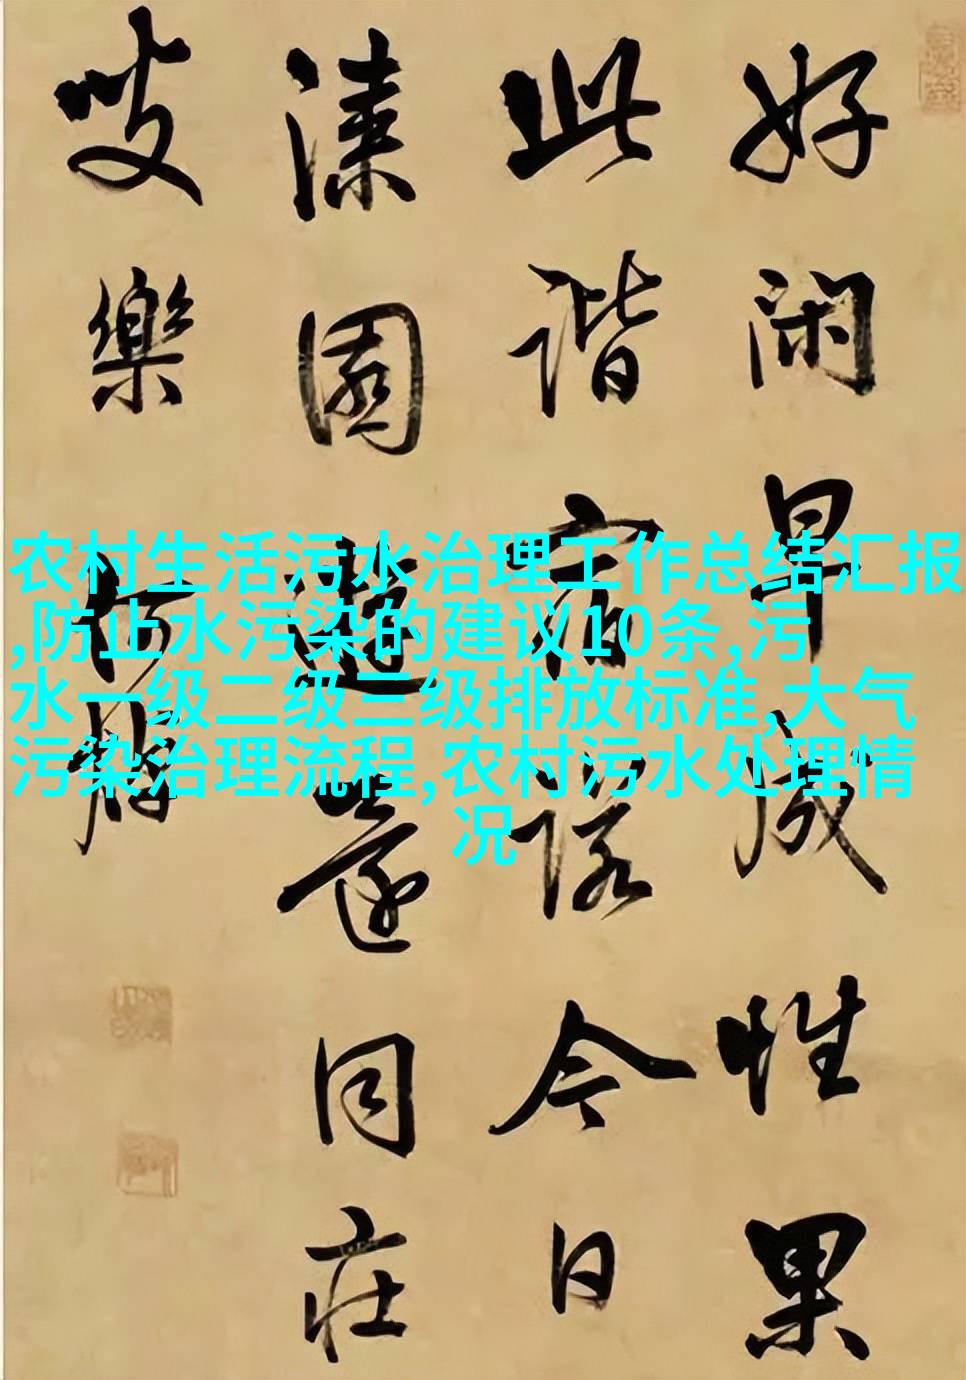 好閑早成性果
此諧宿諾今日
漆園遊還同莊
叟樂
农村生活污水治理工作总结汇报
,防止水污染的建议10条,污
水一级二级三级排放标准,大气
污染治理流程,农村污水处理情
况